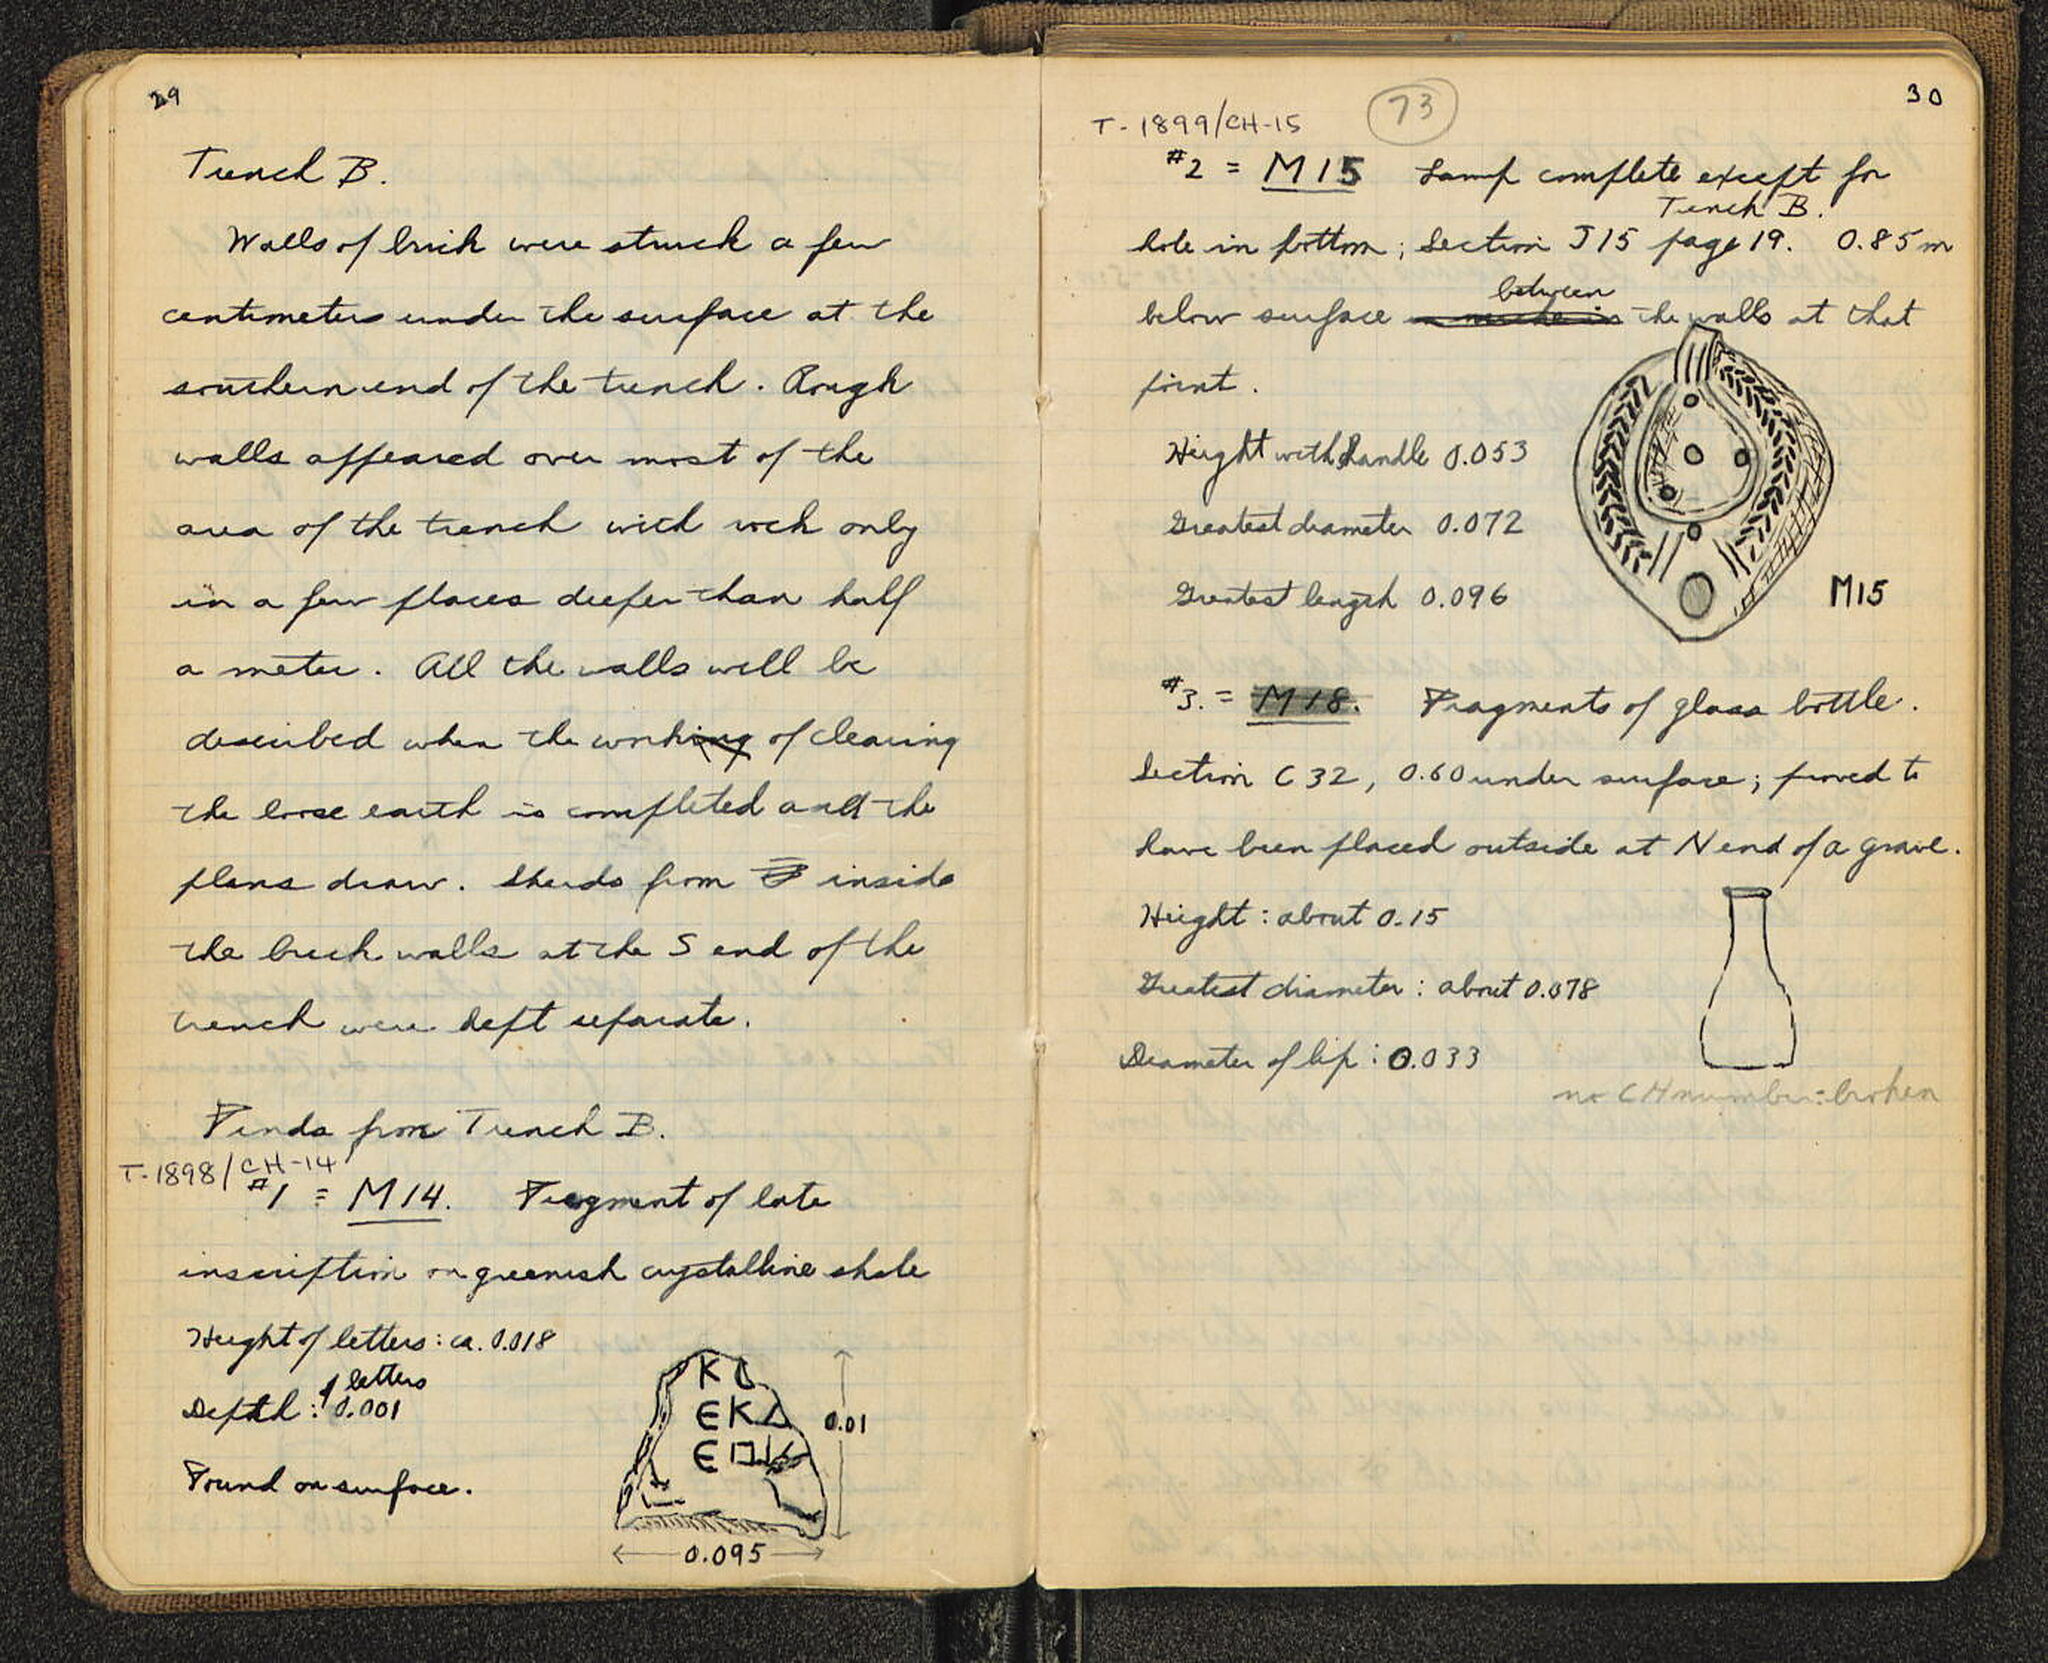 29
Trench B.
Walls of brick were struck a few
centimeters under the surface at the
southern end of the trench. Rough
walls appeared over most of the
area of the trench with rock only
in a few places deeper than half
a meter. All the walls will be
described when the work of clearing
the loose earth is completed and the
plans draw. Sherds from inside
the brick walls at the S end of the
trench were kept separate.
Finds from Trench B.
T-1898/CH-14
#1 = M14. Fragment of late
inscription on greenish crystalline shale
Height of letters: ca. 0.018
of letters
Depth: 0.001
Found on surface.
ЄΚΔ
0.01
0.095
30
73
T-1899/CH-15
#2 = M15 Lamp complete except for
Trench B.
hole in bottom; Section J15 page 19. 0.85m
between
below surface the walls at that
point.
Height with handle 0.053
Greatest diameter 0.072
Greatest length 0.096
M15
#3. = M18. Fragments of glass bottle.
Section C32, 0.60 under surface; proved to
have been placed outside at N end of a grave.
Height: about 0.15
Greatest diameter: about 0.078
Diameter of lip: 0.033
no CH number: broken